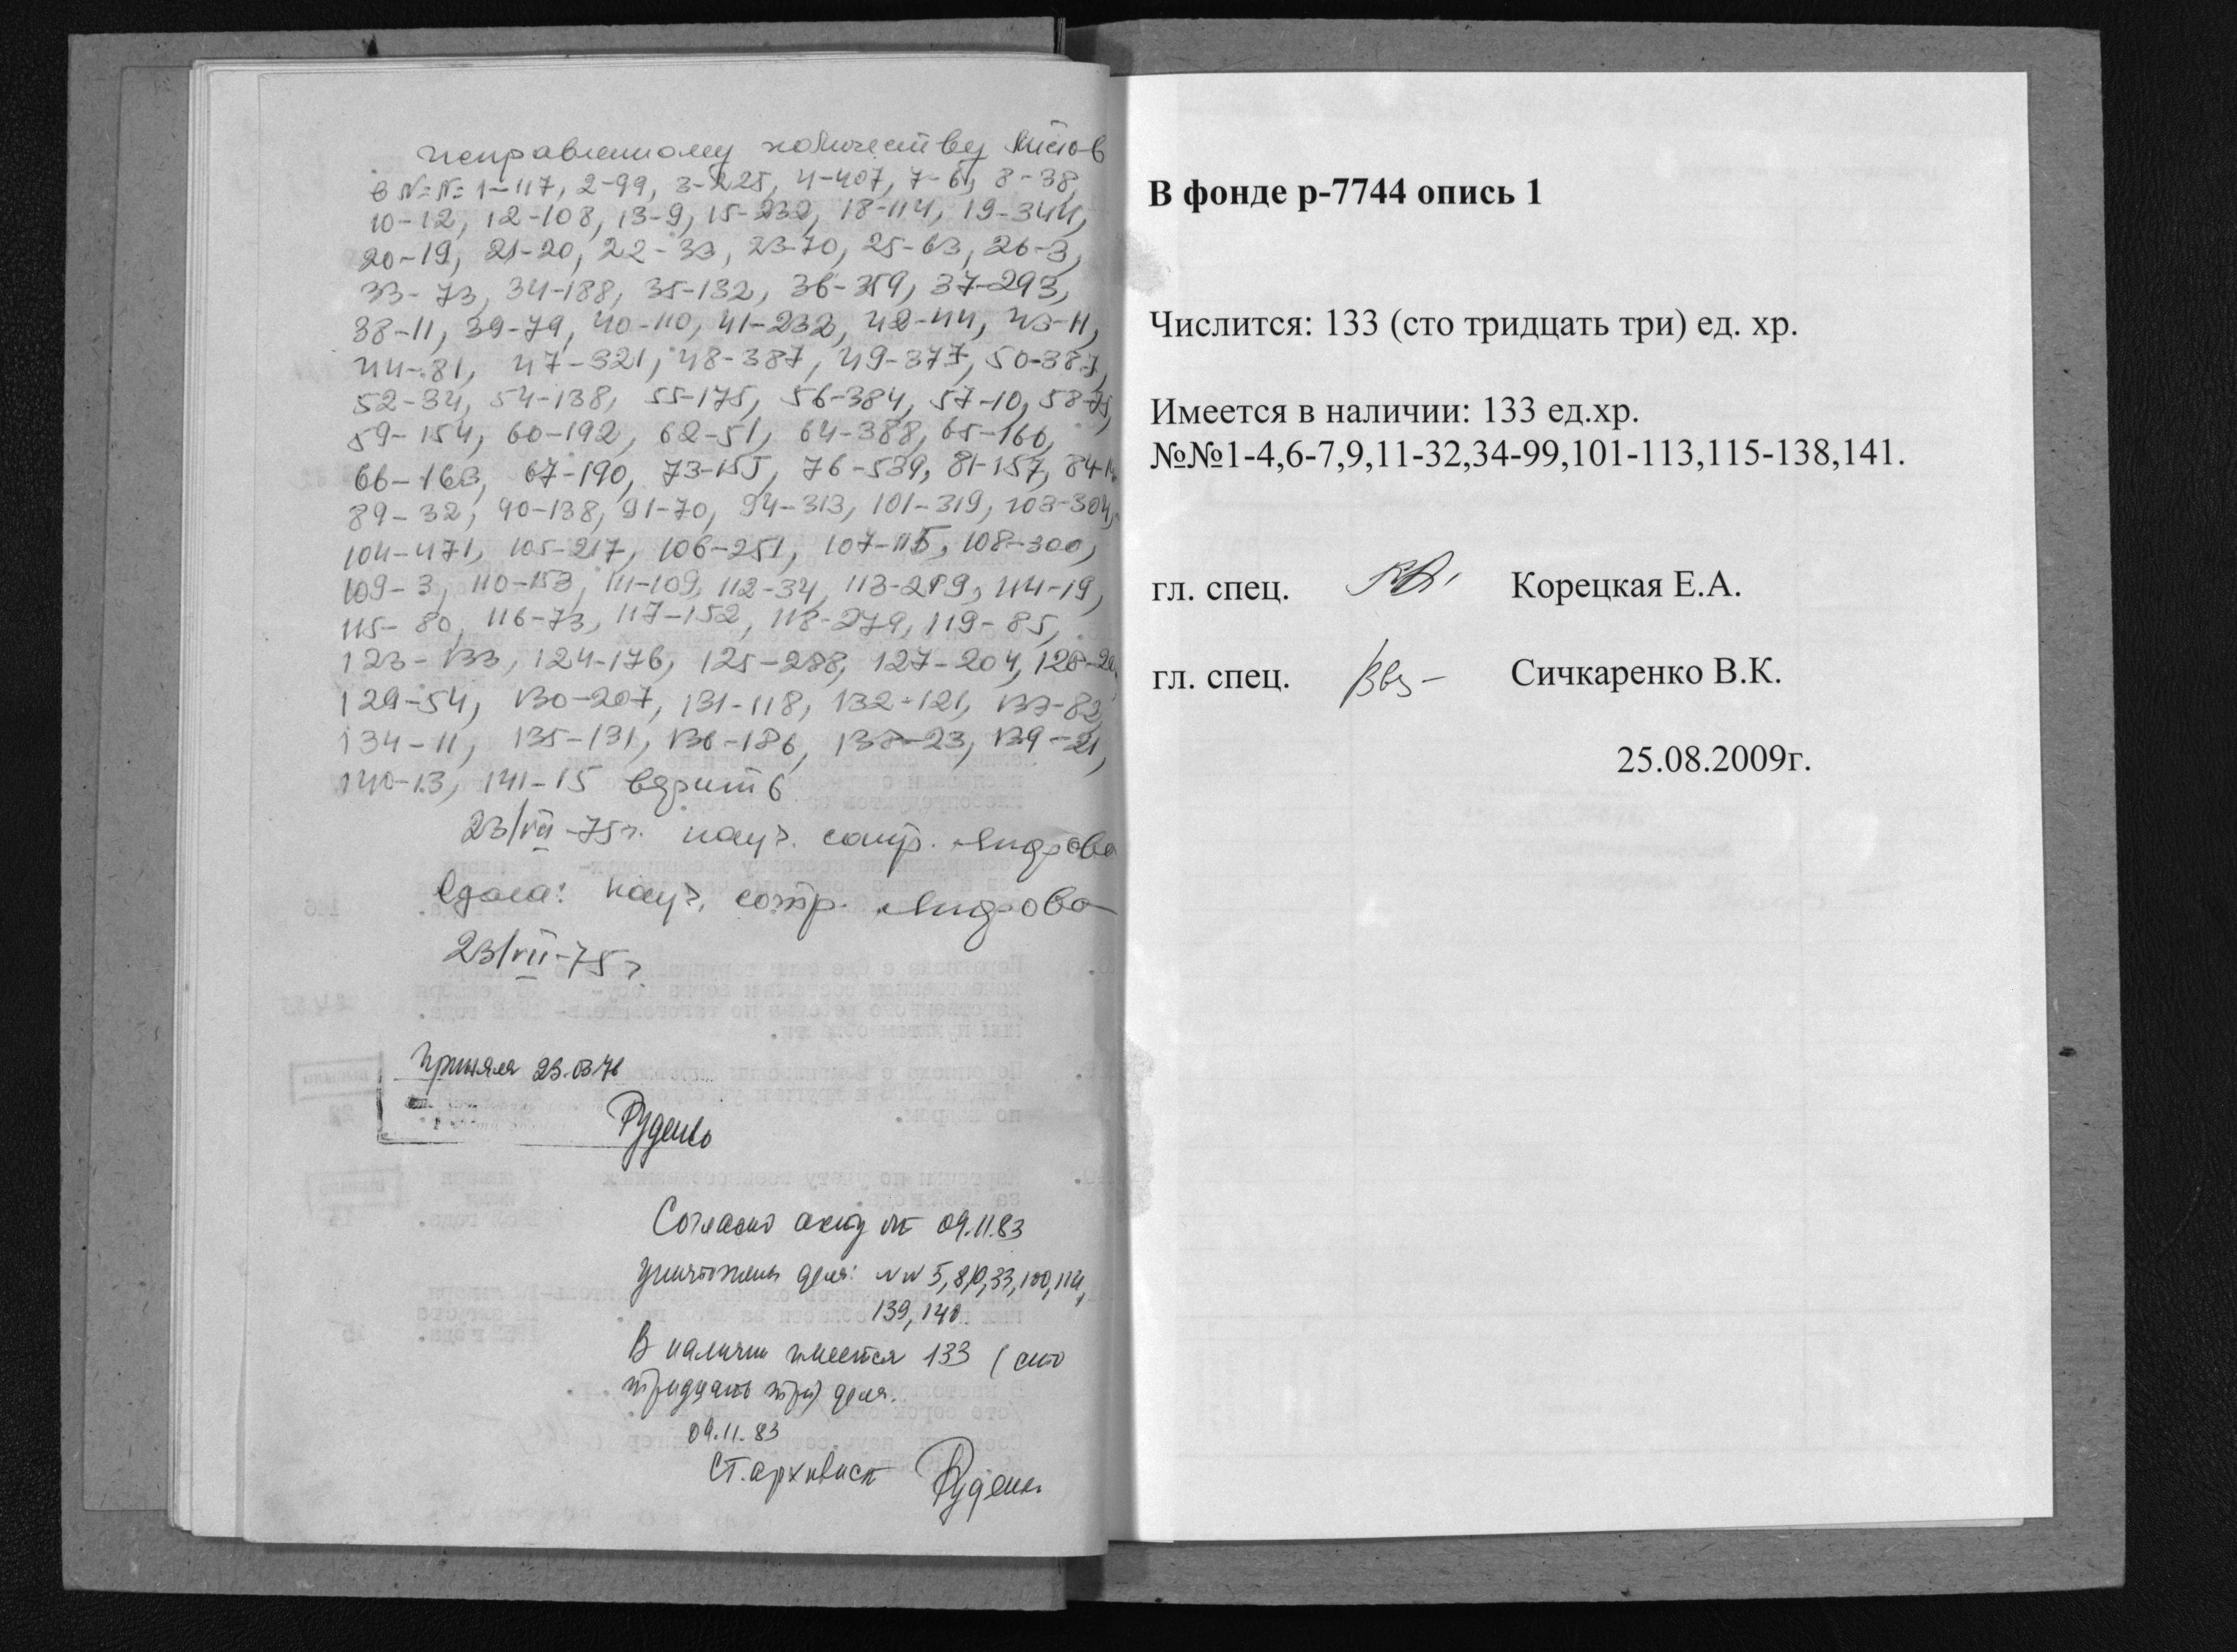 исправленному количеству листов
в №№ 1-117, 2-99, 3-225, 4-407, 7-61, 8-38,
10-12, 12-108, 13-9, 15-232, 18-114, 19-344,
20-19, 21-20, 22-33, 23-70, 25-63, 26-3,
33-73, 34-188, 35-132, 36-359, 37-293,
38-11, 39-79, 40-110, 41-232, 42-44, 43-11,
44-81, 47-321, 48-387, 49-377, 50-387,
52-34, 54-138, 55-175, 56-384, 57-10, 58-75,
59-154, 60-192, 62-51, 64-388, 65-160,
66-163, 67-190, 73-155, 76-539, 81-157,
89-32, 90-138, 91-70, 94-313, 101-319, 103-304,
104-471, 105-217, 106-251, 107-115, 108-300,
109-3, 110-153, 111-109, 112-34, 113-219, 114-19,
115-80, 116-73, 117-152, 118-279, 119-85,
123-133, 124-176, 125-288, 127-204,
129-54, 130-207, 131-118, 132-121, 133-82,
134-11, 135-131, 136-186, 138-23, 139-21,
140-13, 141-15 верить
23/VII-75г. науч. сотр.
Сдала: науч. сотр.
23/VII-75г
Приняла 23.03.76
Руденко
Согласно акту от 09.11.83
уничтожены дела: NN 5,8,10,33,100,114,
139, 140
В наличии имеется 133 (сто
тридцать три) дела.
09.11.83
Ст. архивист Руденко
В фонде р-7744 опись 1
Числится: 133 (сто тридцать три) ед. хр.
Имеется в наличии: 133 ед.хр.
№№1-4,6-7,9,11-32,34-99,101-113,115-138,141.
гл. спец. Корецкая Е.А.
гл. спец. Сичкаренко В.К.
25.08.2009г.